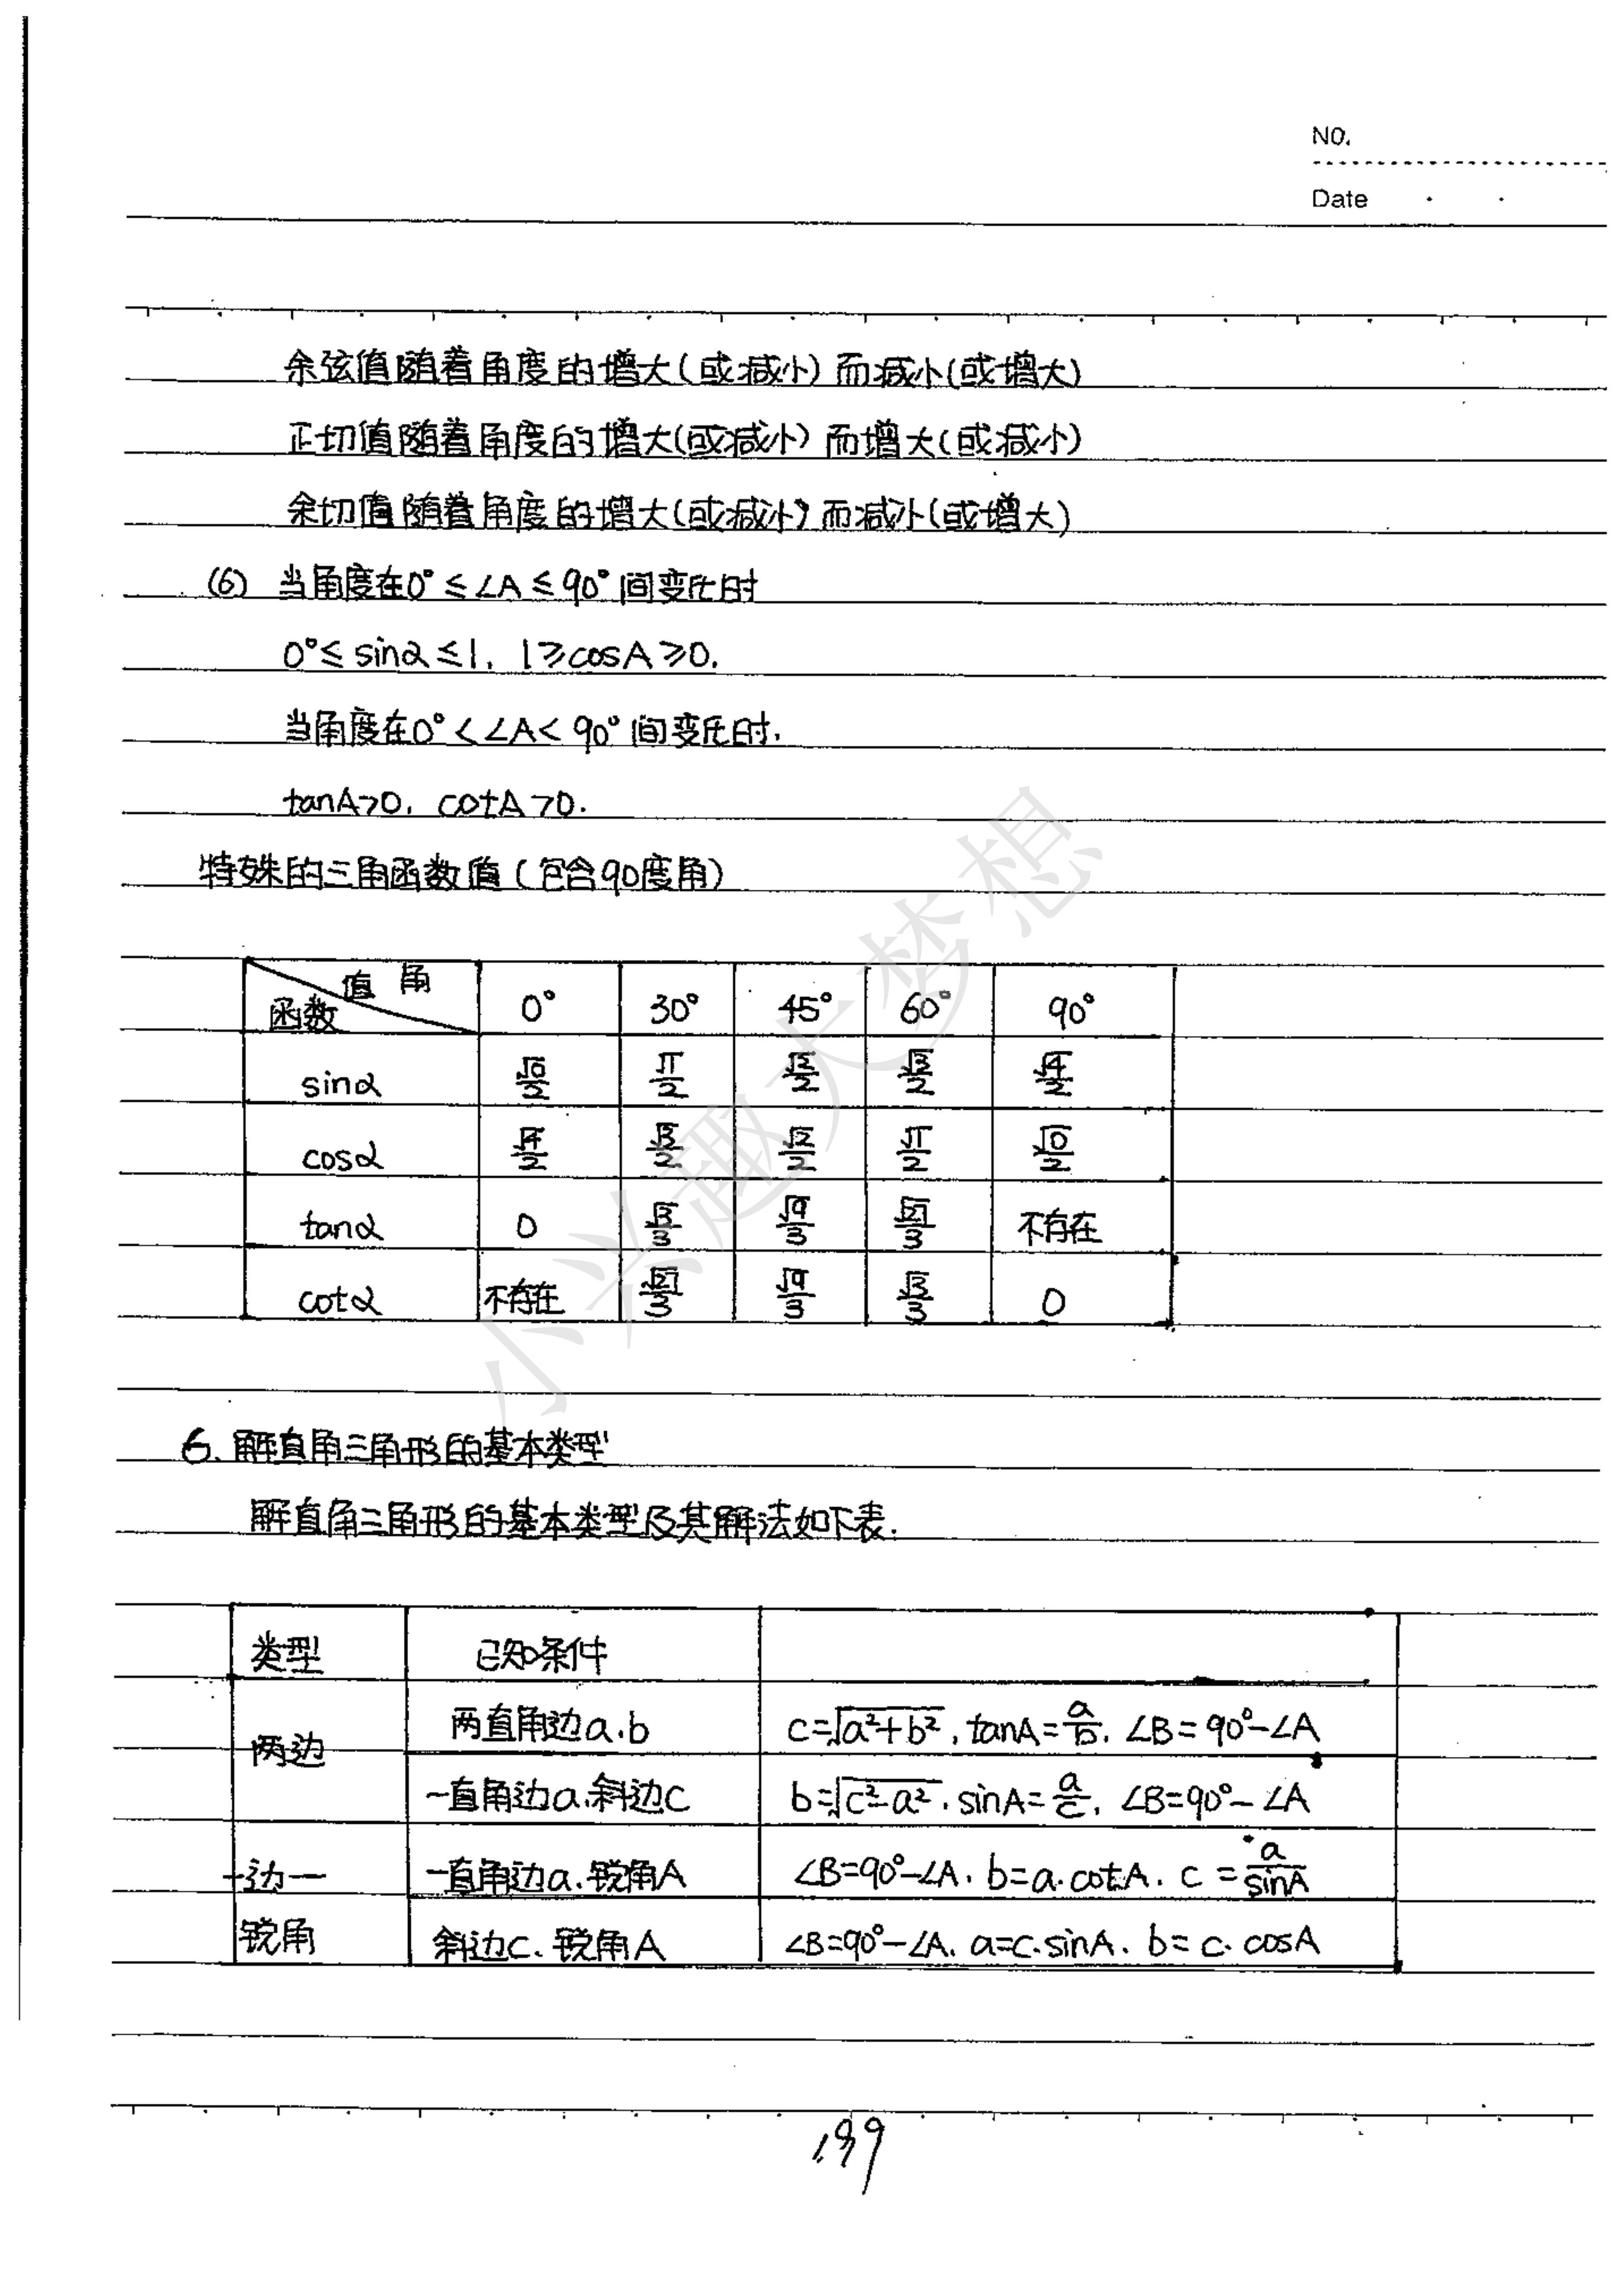 NO.
Date
余弦值随着角度的增大(或减小)而减小(或增大)
正切值随着角度的增大(或减小)而增大(或减小)
余切值随着角度的增大(或减小)而减小(或增大)
(6) 当角度在0°≤∠A≤90°间变化时
0°≤sinα≤1, 1≥cosA≥0.
当角度在0°<∠A<90°间变化时.
tanA>0, cotA>0.
特殊的三角函数值(包含90度角)
函数 值 角 0° 30° 45° 60° 90°
sinα √0/2 √1/2 √2/2 √3/2 √4/2
cosα √4/2 √3/2 √2/2 √1/2 √0/2
tanα 0 √3/3 √9/3 √27/3 不存在
cotα 不存在 √27/3 √9/3 √3/3 0
6. 解直角三角形的基本类型
解直角三角形的基本类型及其解法如下表.
类型 已知条件
两边 两直角边a.b c=√(a²+b²), tanA=a/b, ∠B=90°-∠A
一直角边a.斜边c b=√(c²-a²), sinA=a/c, ∠B=90°-∠A
一边一 一直角边a.锐角A ∠B=90°-∠A, b=a·cotA, c=a/sinA
锐角 斜边c、锐角A ∠B=90°-∠A, a=c·sinA, b=c·cosA
139
小兴趣大梦想